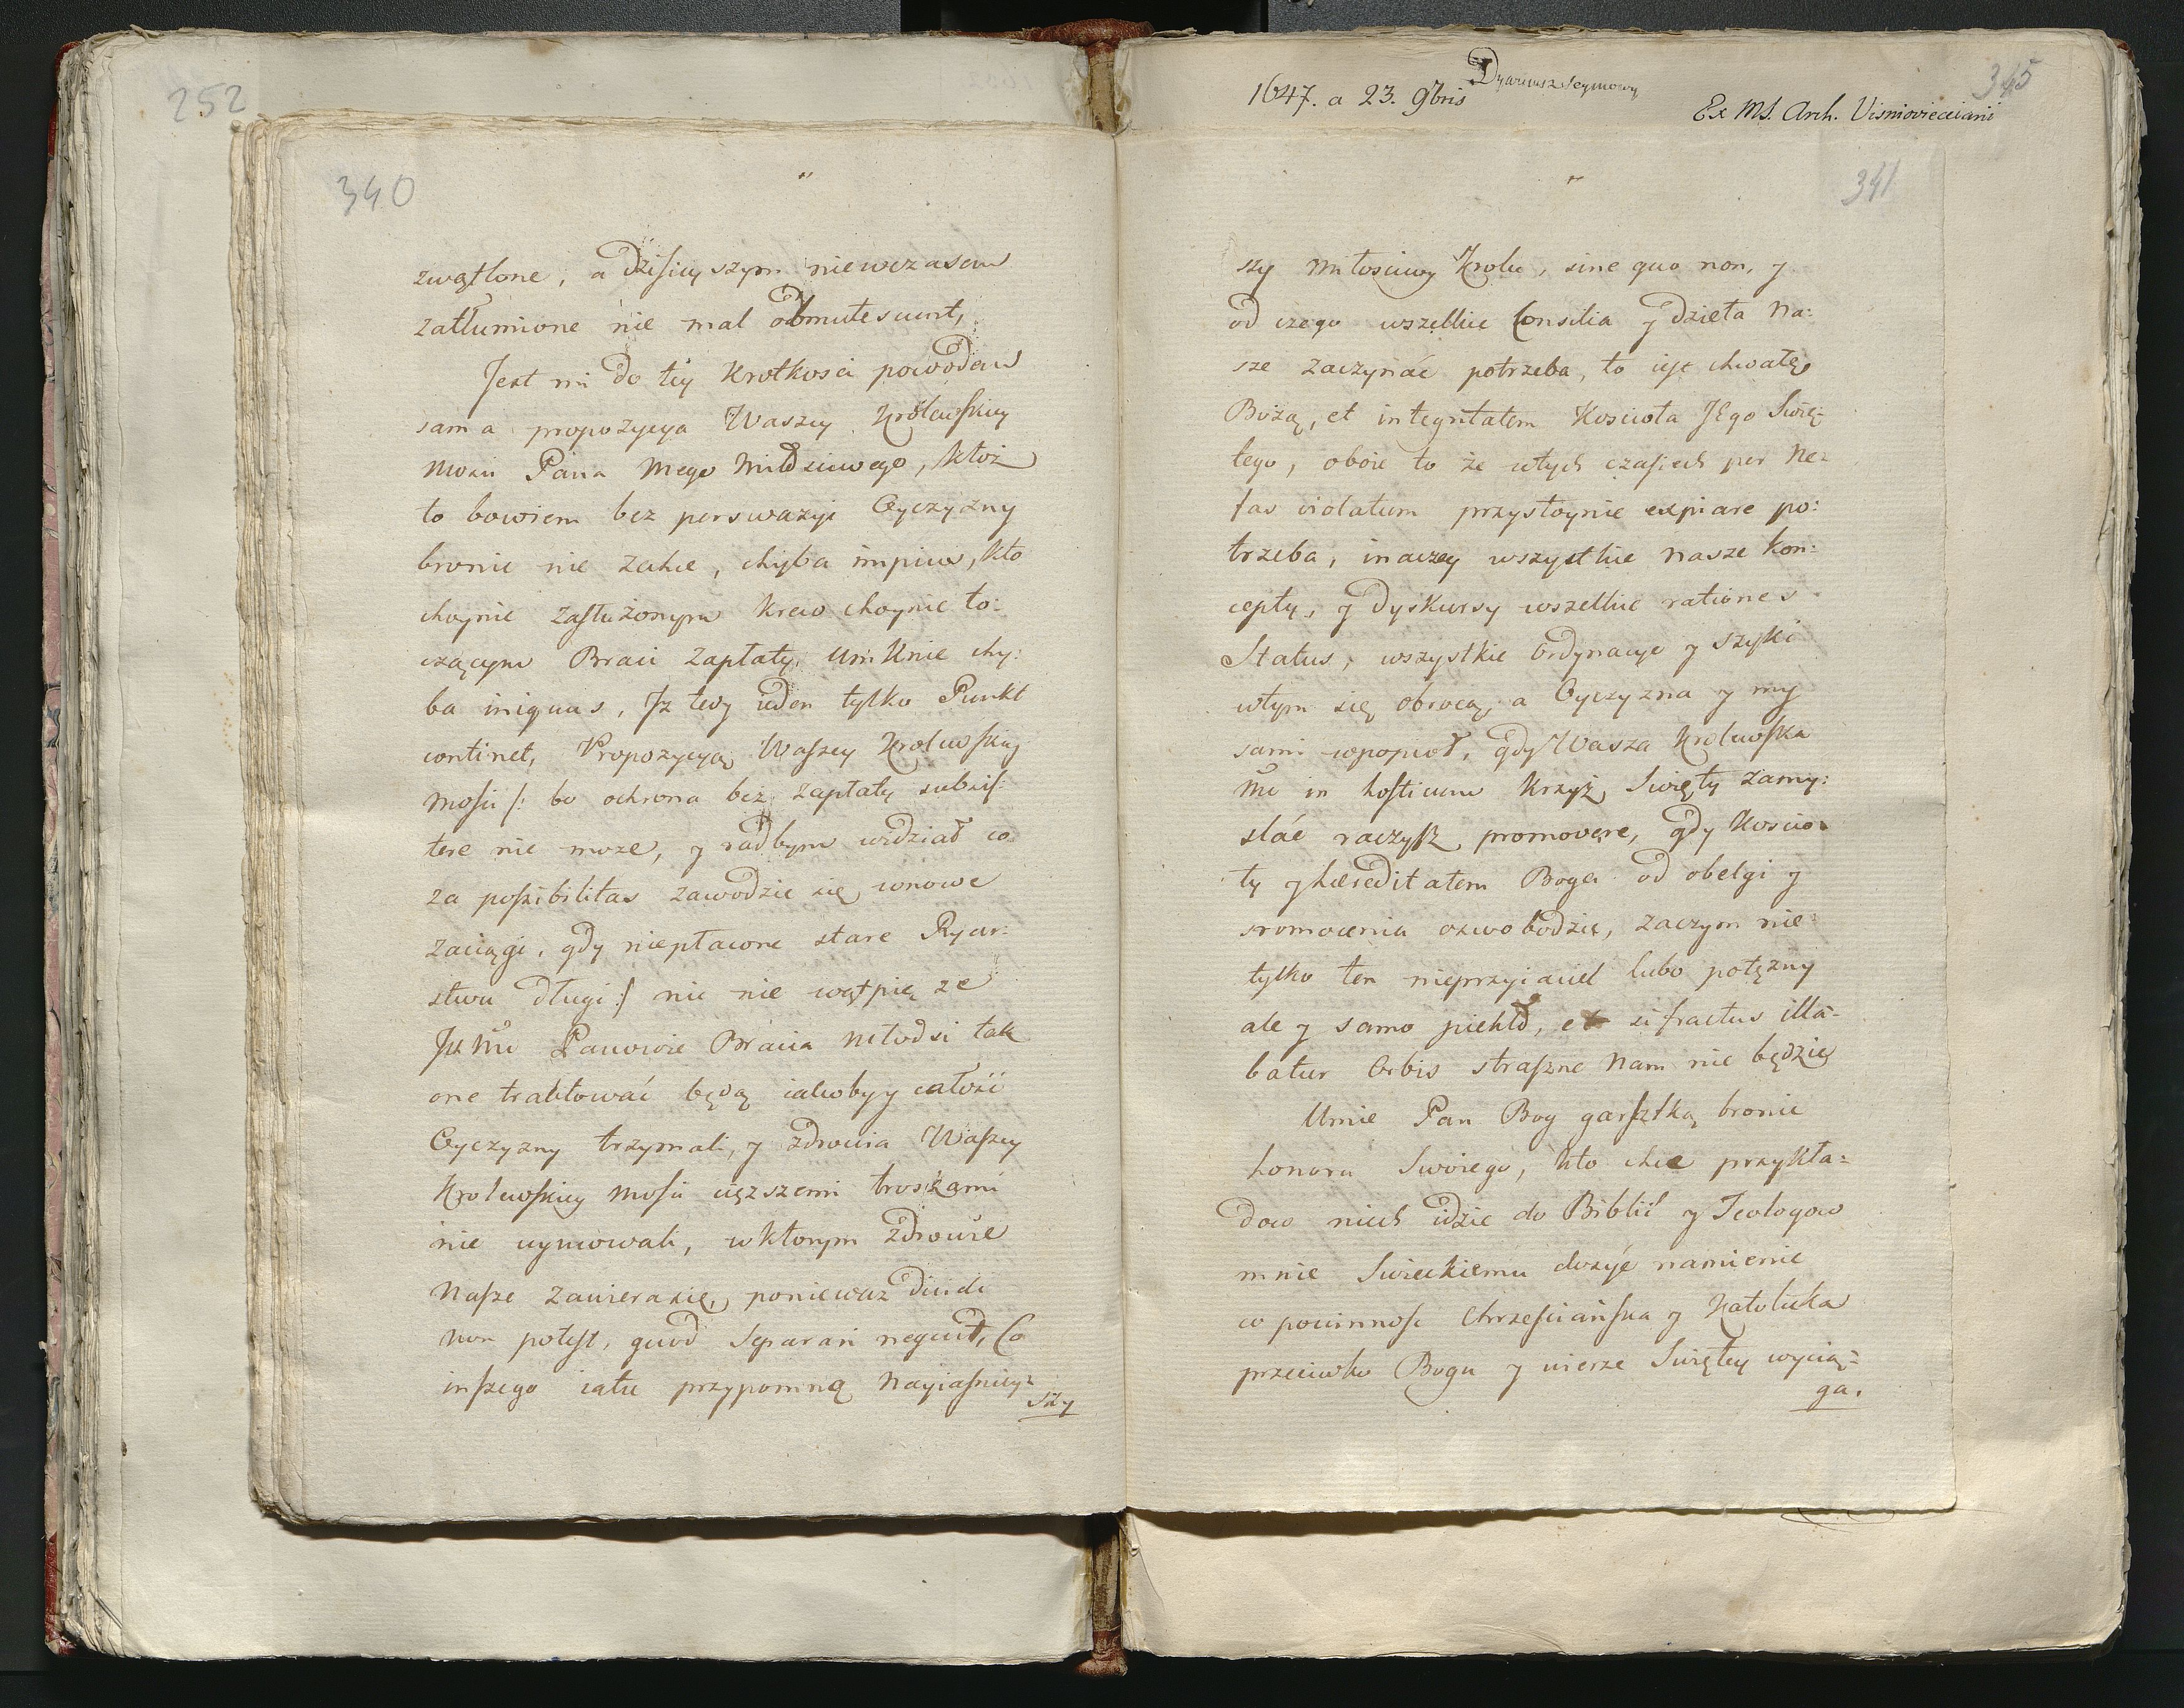 252
340
zwątlone, a dzisieyszym niewczasem
zatłumione nie mal obmutescunt,
Jest mi do tey krotkosci powodem
sama propozycya Waszey Krolewskiey
Mosci Pana mego Miłosciwego, ktoż
to bowiem bez perswazyi Oyczyzny
bronic nie zahce, chyba impius, kto
choynie zasłużonym krew choynie to:
czącym Braci zapłaty umknie chy:
ba iniquus, Jz tedy ieden tylko Punkt
continet, Propozycya Waszey Krolewskiey
Mosci /: bo ochrona bez zapłaty subsis:
tere nie moze, y radbym widział co
za possibilitas zawodzic się wnowe
zaciągi, gdy niepłacone stare Rycer:
stwu długi :/ nic nie wątpię ze
Jch Mć Panowie Bracia Młodsi tak
one traktować będą iakoby y całość
Oyczyzny trzymali, y zdrowia Waszey
Krolewskiey Mosci cięzszemi troskami
nie uymowali, w ktorym zdrowie
nasze zawiera się, poniewaz dividi
non potest, quod separari nequit, Co
inszego iako przypomnę Nayiasniey:
szy
1647. a 23. 9bris
Dyariusz Seymowy
345
Ex MS. Arch. Visniovieciani
341
szy Miłosciwy Krolu, sine quo non, y
od czego wszelkie Consilia y dzieła na:
sze zaczynać potrzeba, to iest chwałę
Bożą, et integritatem Koscioła JEgo Swię:
tego, oboie to że wtych czasiech per ne:
fas violatum przystoynie expiare po:
trzeba, inaczey wszystkie nasze kon:
cepty, y dyskursy wszelkie rationes
Status, wszystkie Ordynacye y szyki
wtym się obrocą, a Oyczyzna y my
sami wpopioł, gdy Wasza Krolewska
Mć in hosticum Krzyż Swięty zamy:
slać raczysz promovere, gdy Koscio:
ły y hæreditatem Boga od obelgi y
sromocenia oswobodzic, zaczym nie
tylko ten nieprzyiaciel lubo potężny
ale y samo piekło, et si fractus illa:
batur Orbis straszne nam nie będzie
Umie Pan Bog garsztką bronic
honoru Swoiego, kto chce przykła:
dow niech idzie do Biblii y Teologow
mnie Swieckiemu dosyć namienic
co powinnosc Chrzescianska y Katolicka
przeciwko Bogu y wierze Swiętey wycią:
ga.